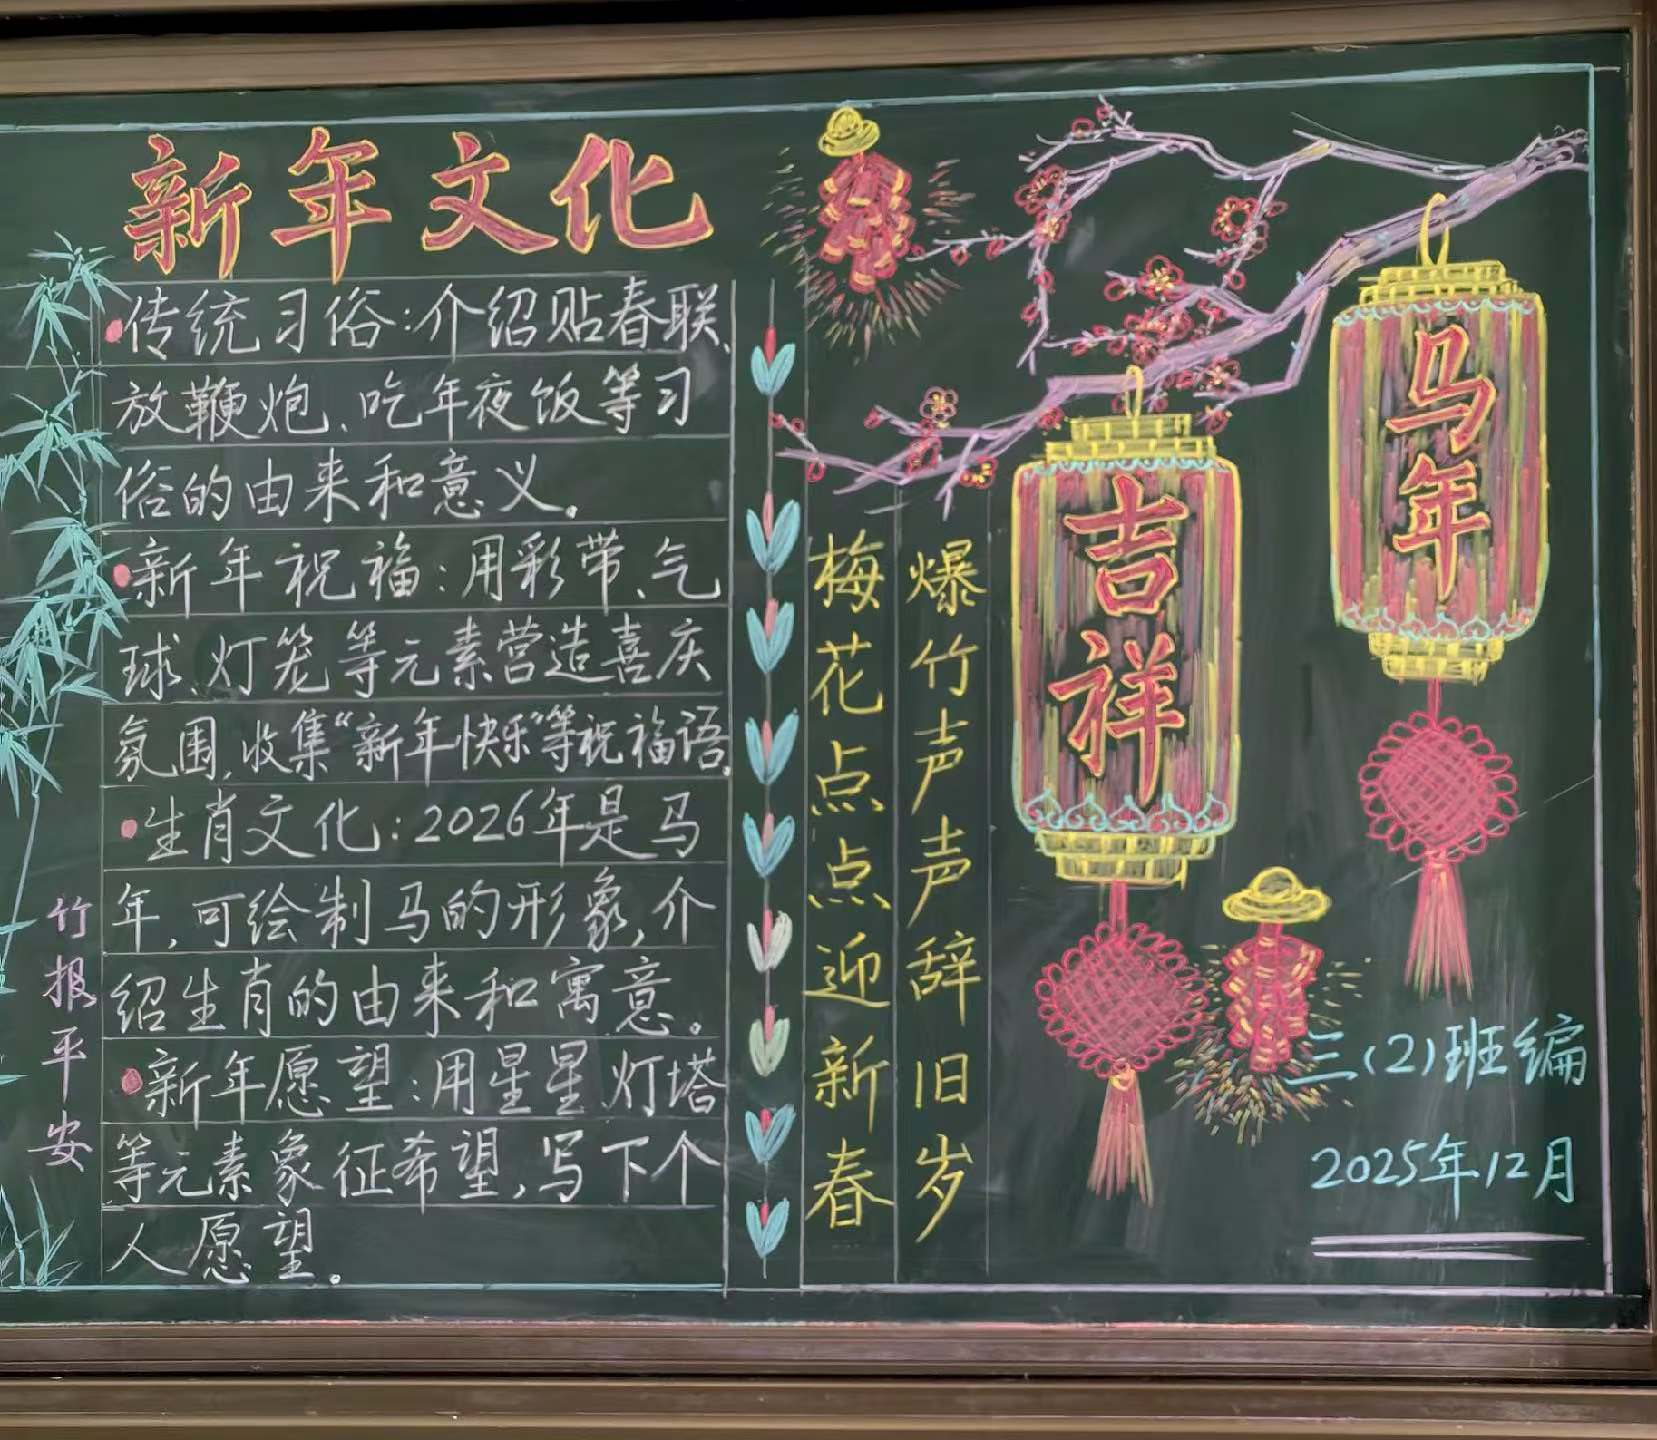 新年文化
传统习俗:介绍贴春联、
放鞭炮、吃年夜饭等习
俗的由来和意义。
新年祝福:用彩带、气
球、灯笼等元素营造喜庆
氛围,收集“新年快乐”等祝福语.
生肖文化:2026年是马
年,可绘制马的形象,介
绍生肖的由来和寓意。
新年愿望:用星星灯塔
等元素象征希望,写下个
人愿望。
竹报平安
爆竹声声辞旧岁
梅花点点迎新春
马年
吉祥
三(2)班编
2025年12月